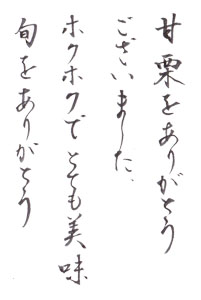 甘栗をありがとう
ございました、
ホクホクでとても美味
旬をありがとう